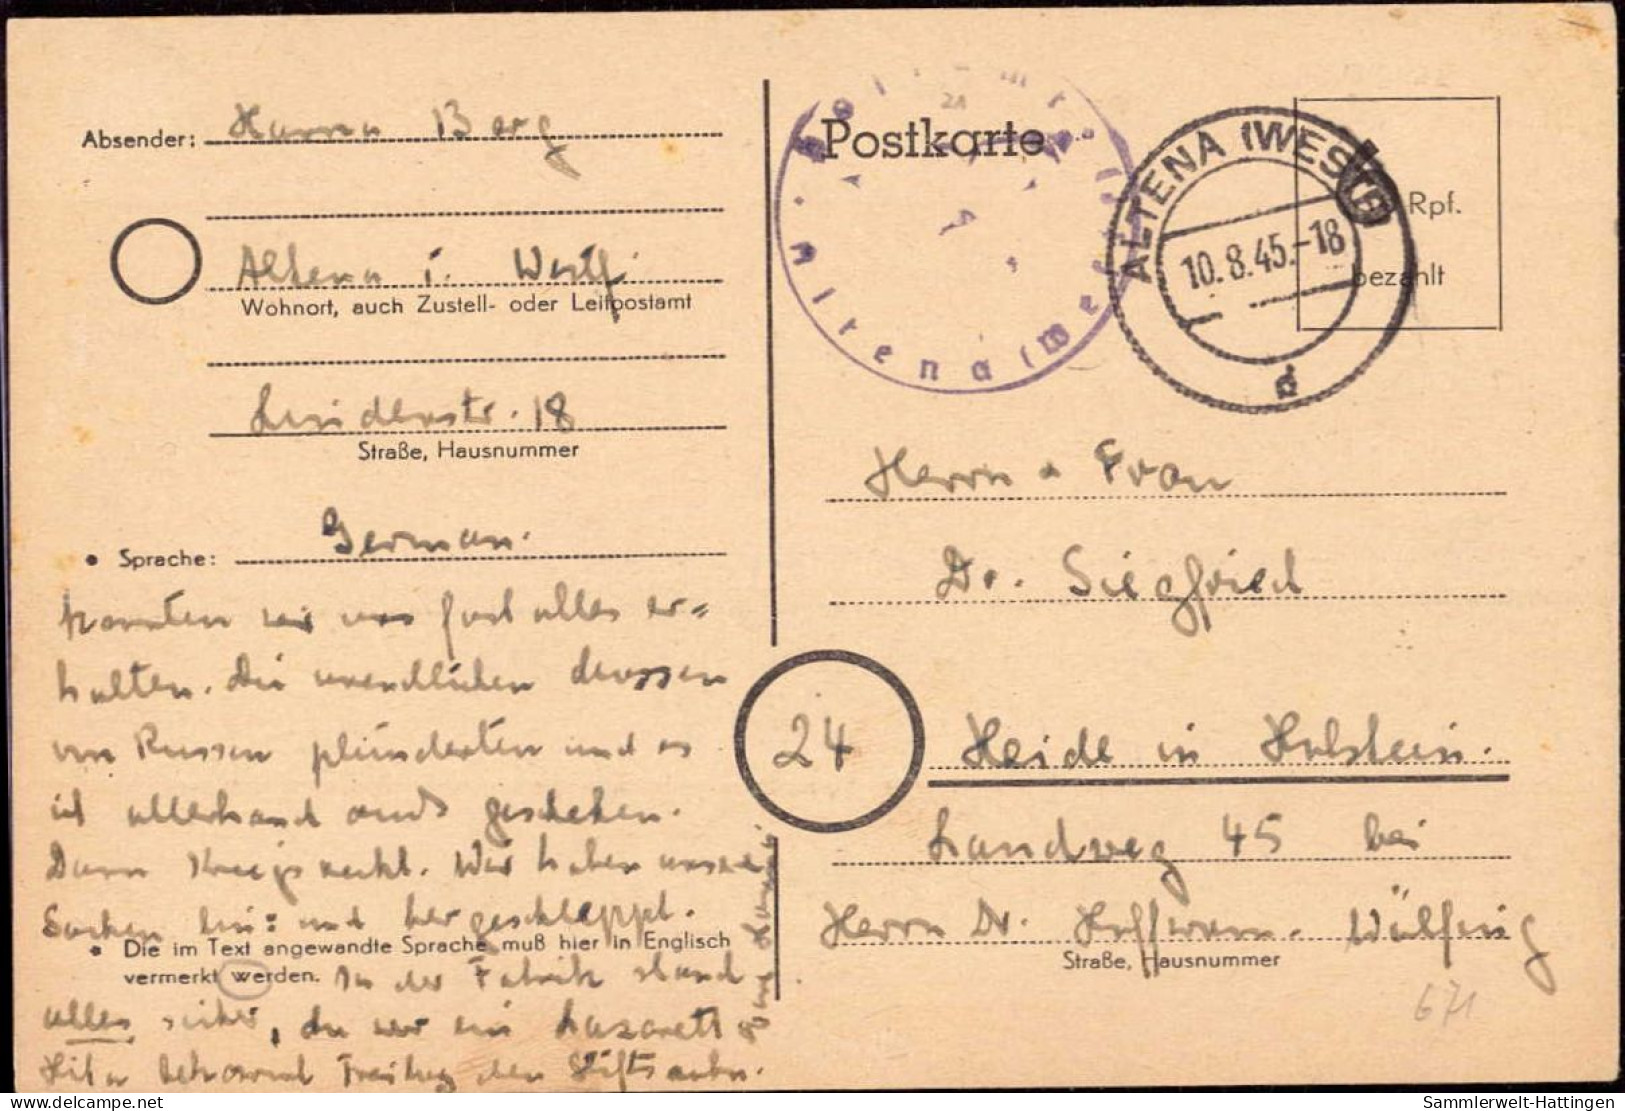 Absender: Hanna Berg
Altena i. Westf.
Wohnort, auch Zustell- oder Leitpostamt
Lindenstr. 18
Straße, Hausnummer
• Sprache: German.
konnten wir uns fast alles er=
halten. Die unendlichen draussen
von Russen plünderten und es
ist allerhand geschehen.
Dann Wir haben unsere
Sachen hin= und hergeschleppt.
• Die im Text angewandte Sprache muß hier in Englisch
vermerkt werden. In der Fabrik stand
alles sicher, da war ein Lazarett
bekommt Freitag den
Postkarte
21
Altena (Westf
ALTENA (WESTF)
10.8.45.-18
d
Rpf.
bezahlt
Herrn u Frau
Dr. Siegfried
24 Heide in Holstein.
Landweg 45 bei
Herrn Dr. Hoffmann. Wülfing
Straße, Hausnummer
671
delcampe.net
Sammlerwelt-Hattingen